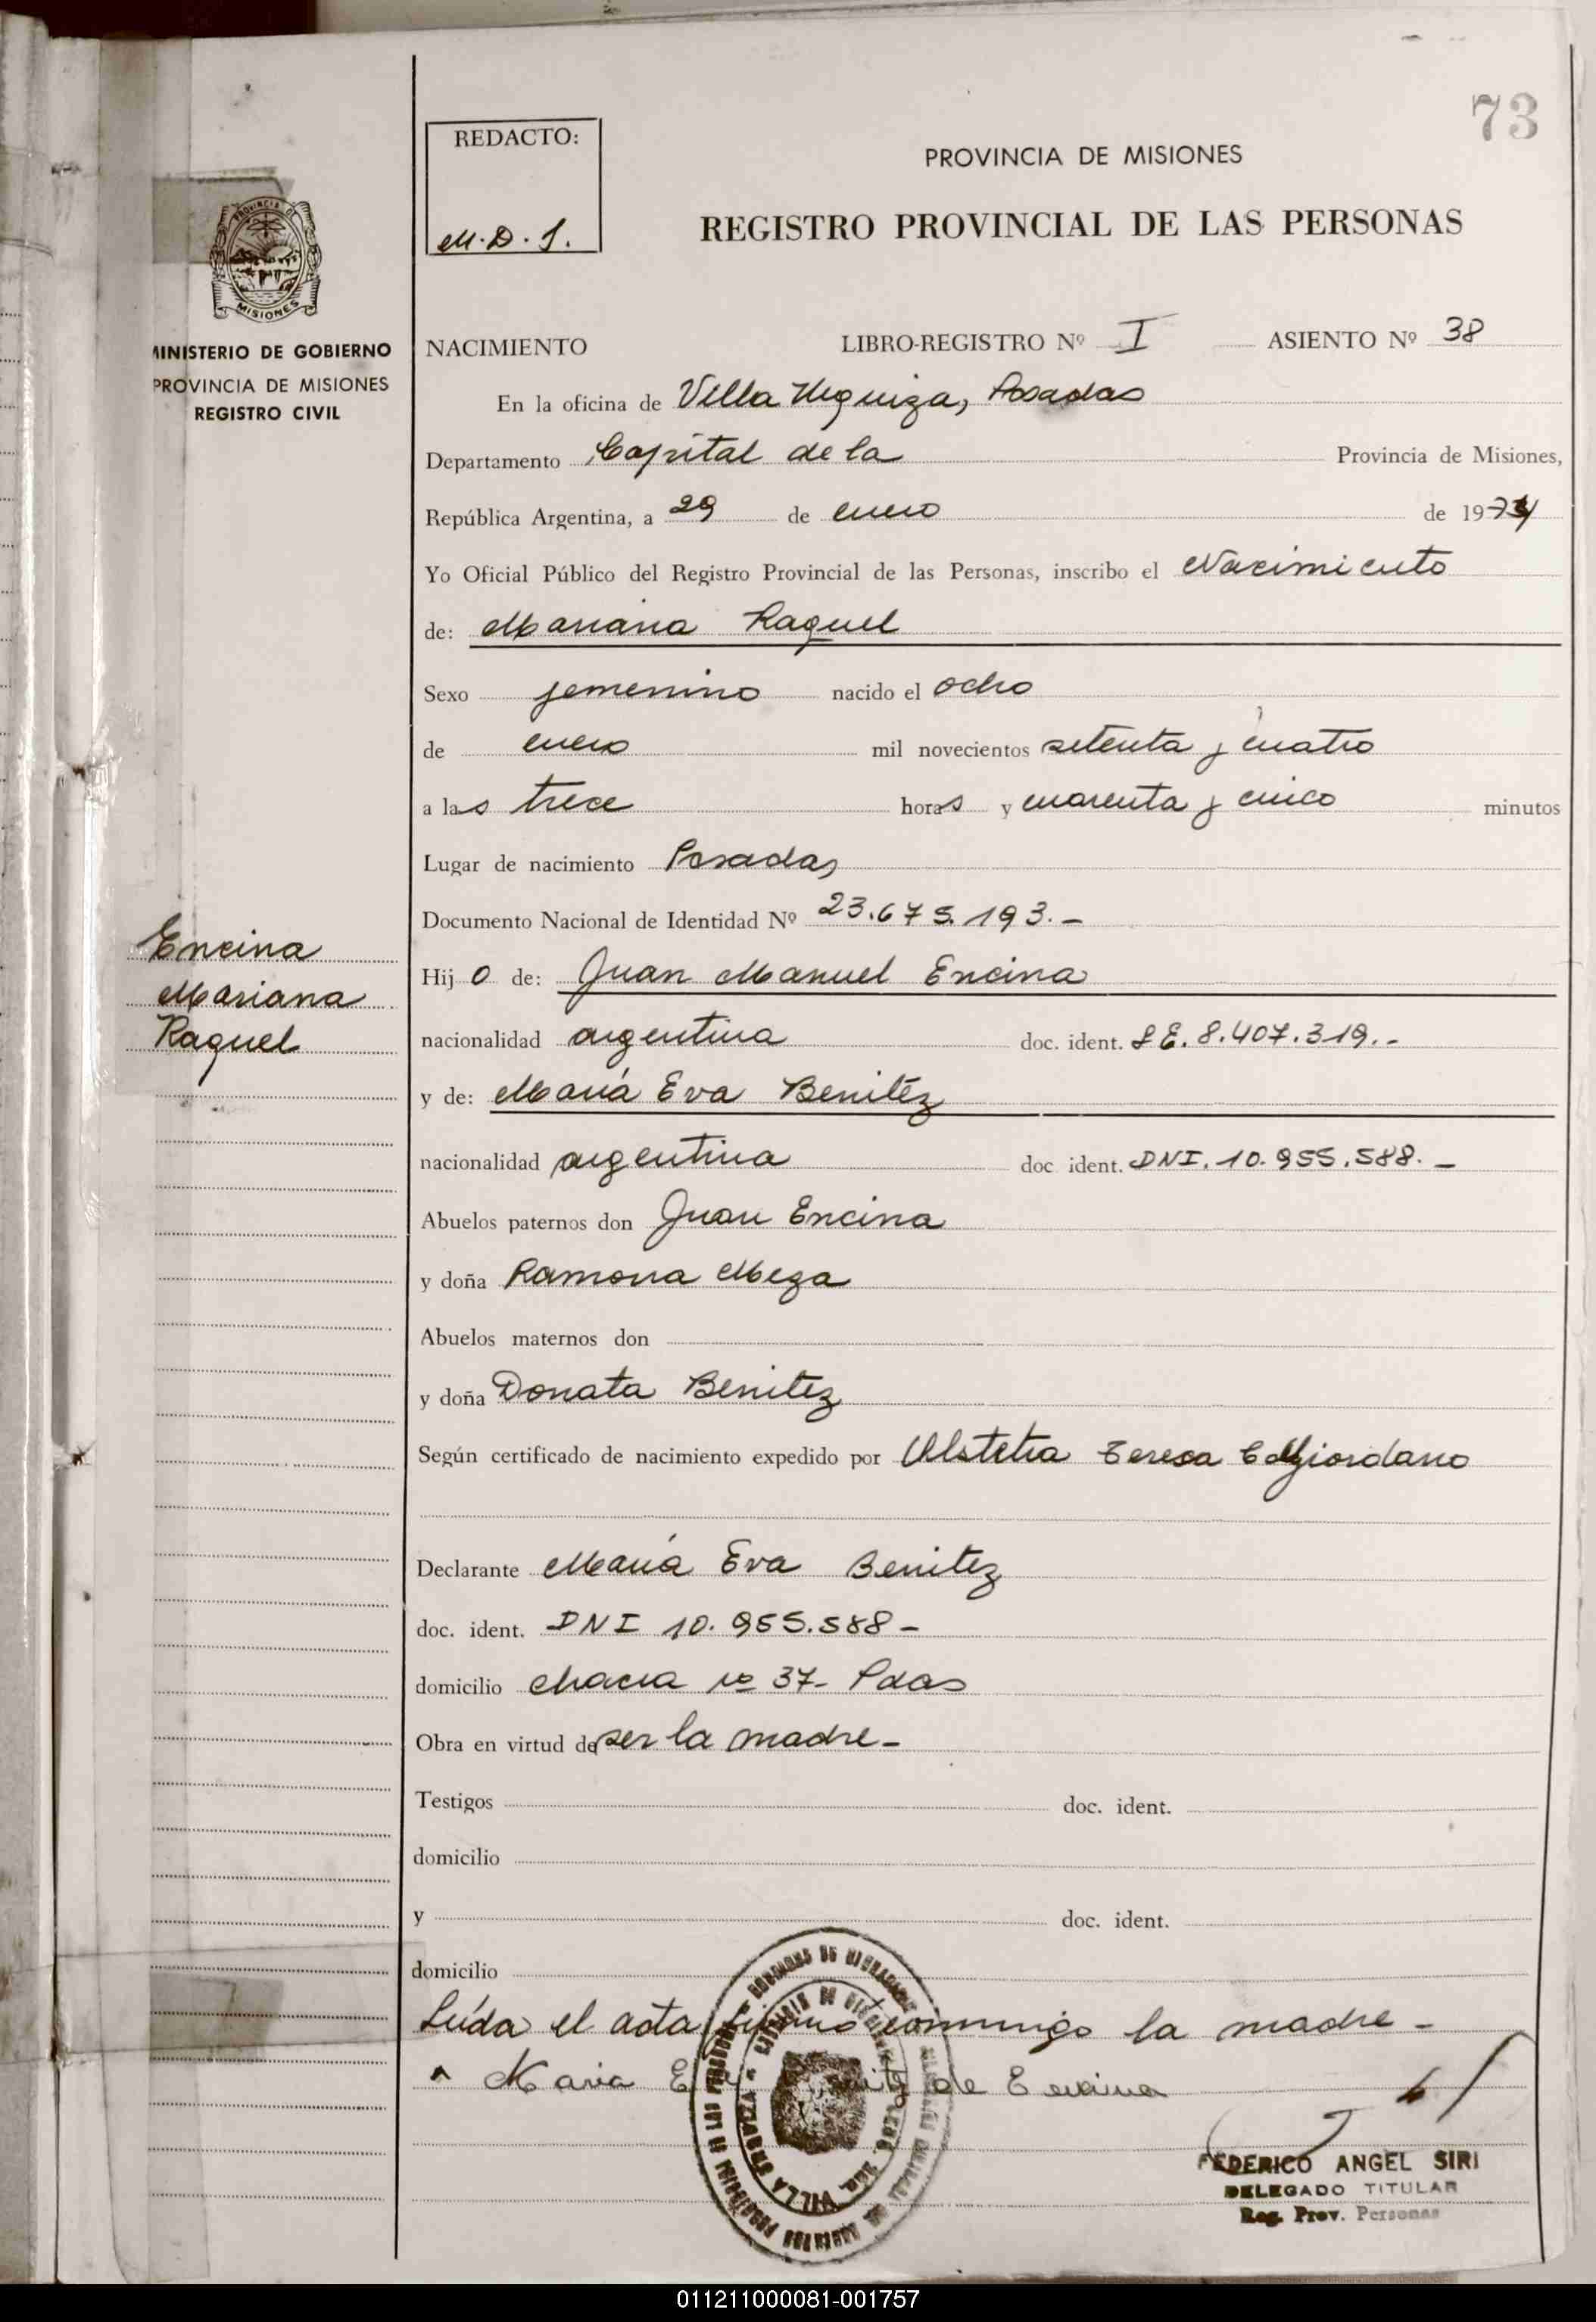 73
REDACTO:
M.D.S.
PROVINCIA DE MISIONES
REGISTRO PROVINCIAL DE LAS PERSONAS
PROVINCIA D
MISIONES
MINISTERIO DE GOBIERNO
PROVINCIA DE MISIONES
REGISTRO CIVIL
NACIMIENTO LIBRO-REGISTRO Nº I ASIENTO Nº 38
En la oficina de Villa Urquiza, Posadas
Departamento Capital de la Provincia de Misiones,
República Argentina, a 29 de enero de 1974
Yo Oficial Público del Registro Provincial de las Personas, inscribo el Nacimiento
de: Mariana Raquel
Sexo femenino nacido el ocho
de enero mil novecientos setenta y cuatro
a las trece horas y cuarenta y cinco minutos
Lugar de nacimiento Posadas
Documento Nacional de Identidad Nº 23.675.193.-
Encina
Mariana
Raquel
Hijo de: Juan Manuel Encina
nacionalidad argentina doc. ident. LE. 8.407.319.-
y de: María Eva Benítez
nacionalidad argentina doc ident. DNI. 10.955.588.-
Abuelos paternos don Juan Encina
y doña Ramona Meza
Abuelos maternos don
y doña Donata Benitez
Según certificado de nacimiento expedido por Obstetra Teresa Giordano
Declarante María Eva Benitez
doc. ident. DNI 10.955.588-
domicilio chacra nº 37- Pdas
Obra en virtud de ser la madre-
Testigos doc. ident.
domicilio
y doc. ident.
domicilio
Leída el acta firmó conmigo la madre-
Maria de Encina
VILLA URQUIZA
FEDERICO ANGEL SIRI
DELEGADO TITULAR
Reg. Prov. Personas
011211000081-001757